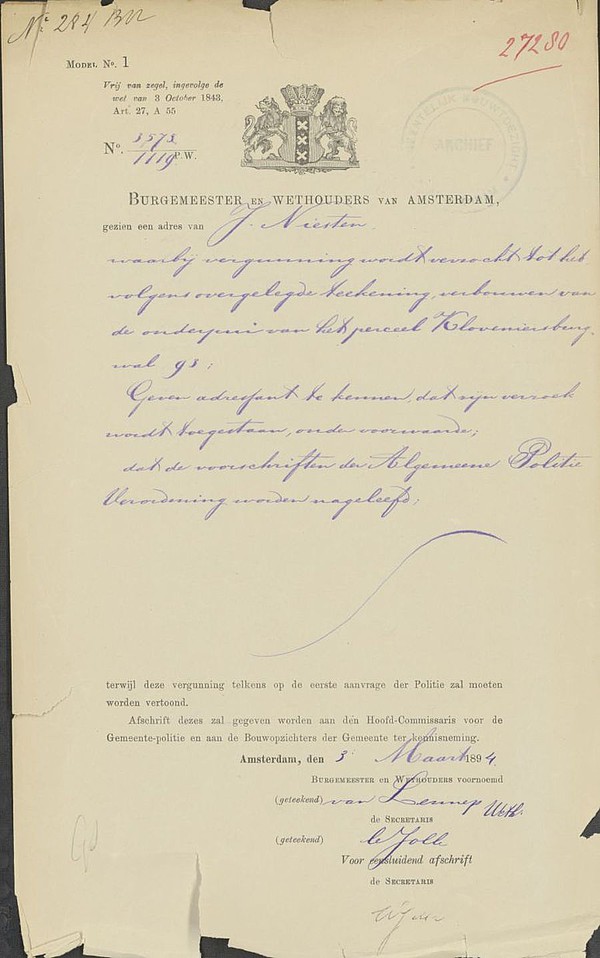 Nº 284 BW
27280
MODEL No. 1
Vrij van zegel, ingevolge de
wet van 3 October 1843,
Art. 27, A 55
ARCHIEF
No. 3573
1119 P.W.
BURGEMEESTER EN WETHOUDERS VAN AMSTERDAM,
gezien een adres van J. Niesten
waarbij vergunning wordt verzocht tot het
volgens overgelegde teekening, verbouwen van
de onderpui van het perceel Kloveniersburg
wal 93;
Geven adressant te kennen, dat zijn verzoek
wordt toegestaan, onder voorwaarde;
dat de voorschriften der Algemeene Politie
Verordening worden nageleefd;
terwijl deze vergunning telkens op de eerste aanvrage der Politie zal moeten
worden vertoond.
Afschrift dezes zal gegeven worden aan den Hoofd-Commissaris voor de
Gemeente-politie en aan de Bouwopzichters der Gemeente ter kennisneming.
Amsterdam, den 3 Maart 1894.
BURGEMEESTER en WETHOUDERS voornoemd
(geteekend) van Lennep Weth.
de SECRETARIS
(geteekend) le Jolle
Voor eensluidend afschrift
de SECRETARIS